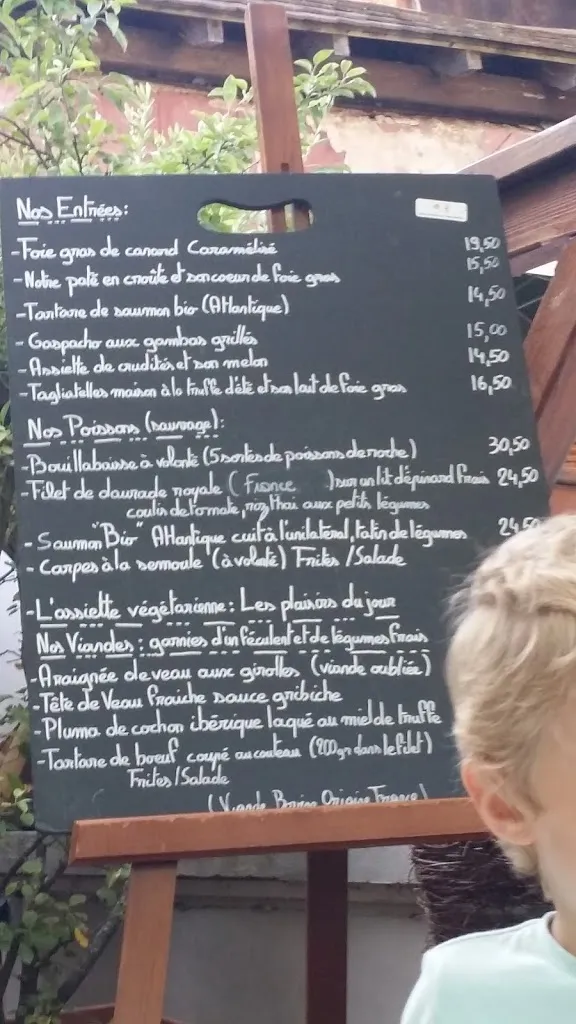 Nos Entrées:
-Foie gras de canard Caramélisé 19,50
-Notre paté en croûte et son coeur de foie gras 15,50
-Tartare de saumon bio (Atlantique) 14,50
- Gaspacho aux gambas grillés 15,00
- Assiette de crudités et son melon 14,50
-Tagliatelles maison à la truffe d'été et son lait de foie gras 16,50
Nos Poissons (sauvage):
-Bouillabaisse à volonté (5 sortes de poissons de roche) 30,50
-Filet de daurade royale (France) sur un lit d'épinard frais 24,50
coulis de tomate, riz thaï aux petits légumes
- Saumon "Bio" Atlantique cuit à l'unilatéral, tatin de légumes 24,50
- Carpes à la semoule (à volonté) Frites /Salade
-L'assiette végétarienne: Les plaisirs du jour
Nos Viandes: garnies d'un féculent et de légumes frais
-Araignée de veau aux girolles (viande oubliée)
-Tête de Veau fraiche sauce gribiche
-Pluma de cochon ibérique laqué au miel de truffe
-Tartare de boeuf coupé au couteau (200gr dans le filet)
Frites/Salade
(Viande Bovine Origine France)